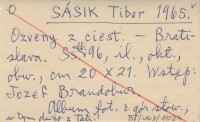 O SÁSIK Tibor 1965.
Ozveny z ciest. - Brati-
slava. 96, il., okł.,
obw., cm 20 X 21. Wstęp:
Jozef Brandobur
Album fot. z gór
w tym dużo z Tatr.